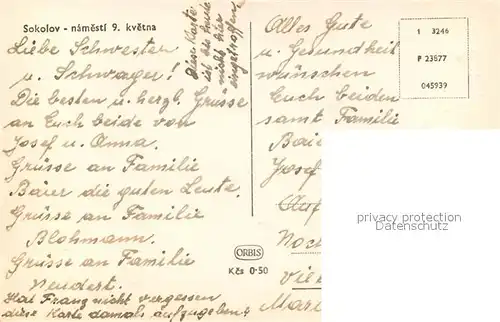 Sokolov - náměstí 9. května
Liebe Schwester
u. Schwager!
Die besten u. herzl. Grüsse
an Euch beide von
Josef u. Anna.
Grüsse an Familie
Baier die guten Leute.
Grüsse an Familie
Blohmann.
Grüsse an Familie
Neudert.
Hat Franz nicht vergessen
diese Karte damals aufzugeben
Diese Karte
ist bis heute
nicht hier
eingetroffen
ORBIS
Kčs 0·50
Alles Gute
u. Gesundheit
wünschen
Euch beiden
samt Familie
Baier
Josef
Auf
Noch
viel
1 3246
P 23577
045939
privacy protection
Datenschutz